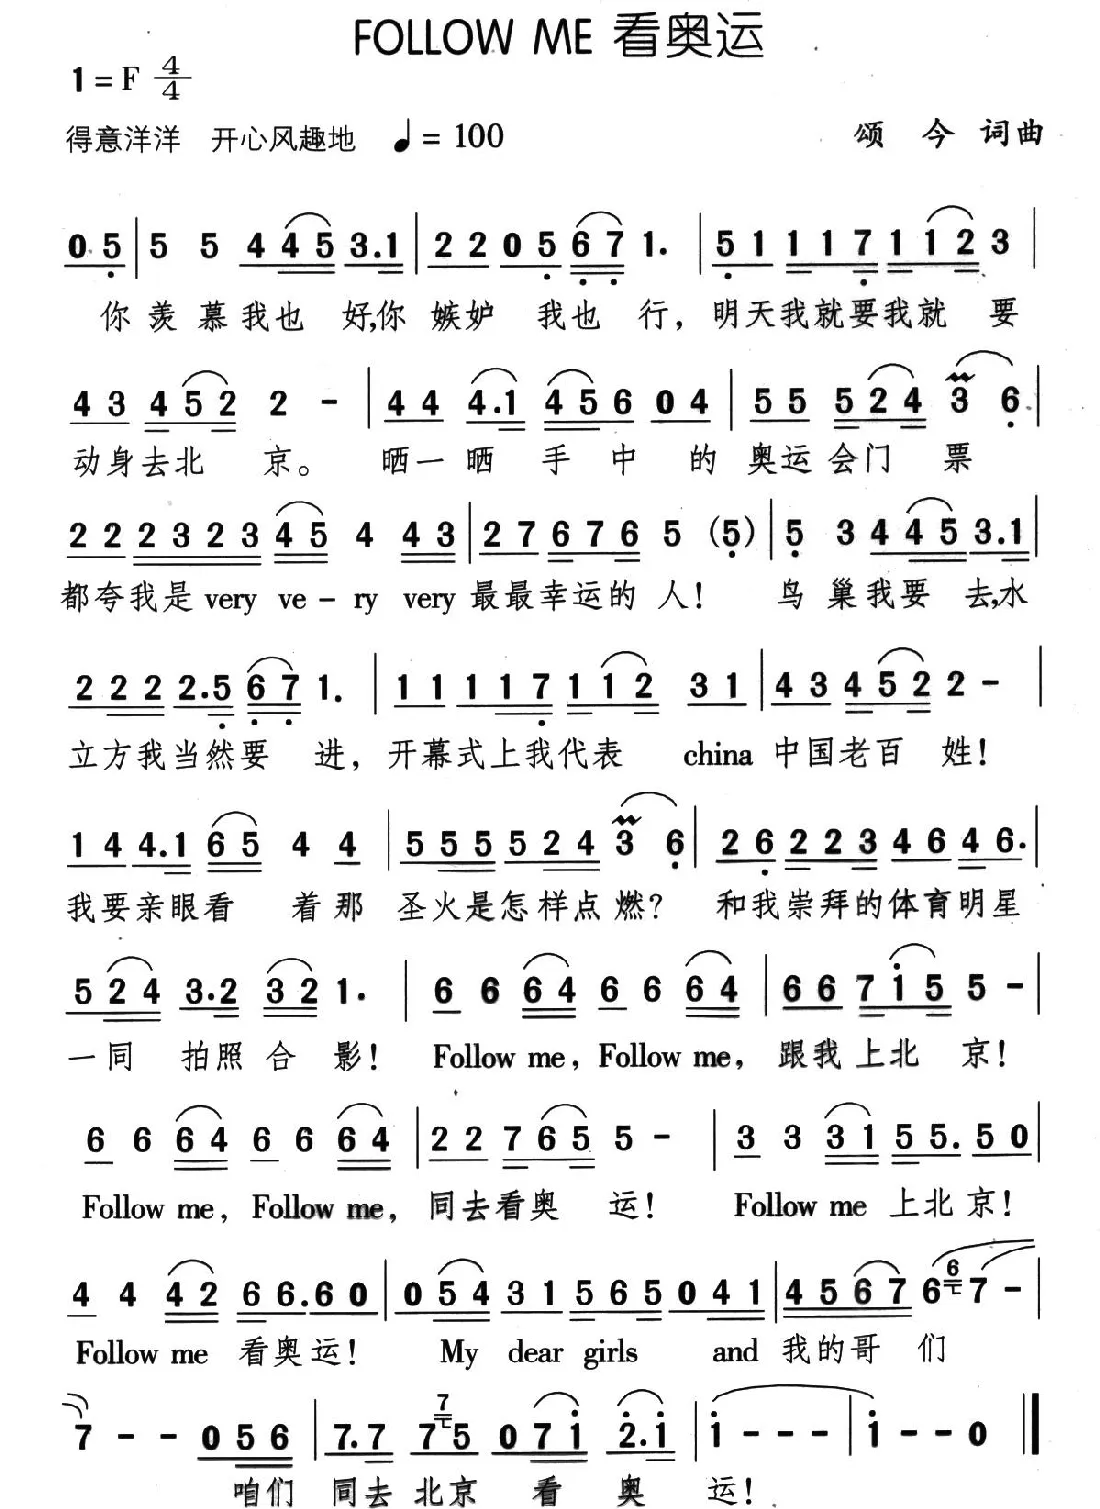 FOLLOW ME 看奥运
1 = F 4/4
得意洋洋 开心风趣地 ♩ = 100 颂 今 词曲
0 5 | 5 5 4 4 5 3.1 | 2 2 0 5 6 7 1. | 5 1 1 1 7 1 1 2 3 |
你羡慕我也 好,你 嫉妒 我也 行, 明天我就要我就 要
4 3 4 5 2 2 - | 4 4 4.1 4 5 6 0 4 | 5 5 5 2 4 3 6 |
动身去北 京。 晒一晒 手 中 的 奥运会门 票
2 2 2 3 2 3 4 5 4 4 3 | 2 7 6 7 6 5 (5) | 5 3 4 4 5 3.1 |
都夸我是 very ve - ry very 最最幸运的 人! 鸟 巢我要 去,水
2 2 2 2.5 6 7 1. | 1 1 1 1 7 1 1 2 3 1 | 4 3 4 5 2 2 - |
立方我当然要 进, 开幕式上我代表 china 中国老百 姓!
1 4 4.1 6 5 4 4 | 5 5 5 5 2 4 3 6 | 2 6 2 2 3 4 6 4 6. |
我要亲眼看 着那 圣火是怎样点 燃? 和我崇拜的体育明星
5 2 4 3.2 3 2 1. | 6 6 6 4 6 6 6 4 | 6 6 7 1 5 5 - |
一同 拍照合 影! Follow me, Follow me, 跟我上北 京!
6 6 6 4 6 6 6 4 | 2 2 7 6 5 5 - | 3 3 3 1 5 5. 5 0 |
Follow me, Follow me, 同去看奥 运! Follow me 上北京!
4 4 4 2 6 6. 6 0 | 0 5 4 3 1 5 6 5 0 4 1 | 4 5 6 7 6 6 7 - |
Follow me 看奥运! My dear girls and 我的哥 们
7 - - 0 5 6 | 7. 7 7 7 5 0 7 1 2.1 | 1 - - - | 1 - - 0 ‖
咱们 同去 北京 看 奥 运!